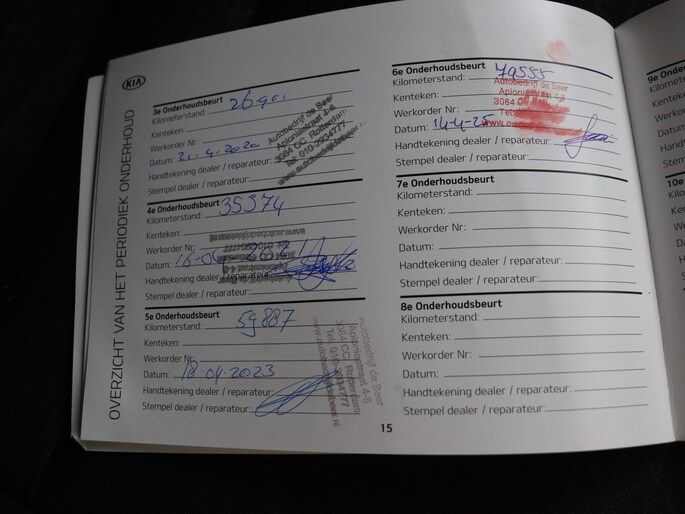 KIA
OVERZICHT VAN HET PERIODIEK ONDERHOUD
3e Onderhoudsbeurt
Kilometerstand:
Kenteken:
Werkorder Nr:
Datum: 21-4-2020
Handtekening dealer / reparateur:
Stempel dealer / reparateur:
Autobedrijf de Beer
Aploniastraat 4-8
3084 CC Rotterdam
Tel: 010-2934777
4e Onderhoudsbeurt
Kilometerstand: 35374
Kenteken:
Werkorder Nr:
Datum:
Handtekening dealer / reparateur:
Stempel dealer / reparateur:
5e Onderhoudsbeurt
Kilometerstand: 59887
Kenteken:
Werkorder Nr:
Datum: 18 04-2023
Handtekening dealer / reparateur:
Stempel dealer / reparateur:
Autobedrijf de Beer
Aploniastraat 4-8
3084 CC Rotterdam
Tel: 010-2934777
6e Onderhoudsbeurt
Kilometerstand: 79555
Kenteken:
Werkorder Nr:
Datum: 14-4-25
Handtekening dealer / reparateur:
Stempel dealer / reparateur:
Autobedrijf de Beer
Aploniastraat 4-8
3084
7e Onderhoudsbeurt
Kilometerstand:
Kenteken:
Werkorder Nr:
Datum:
Handtekening dealer / reparateur:
Stempel dealer / reparateur:
8e Onderhoudsbeurt
Kilometerstand:
Kenteken:
Werkorder Nr:
Datum:
Handtekening dealer / reparateur:
Stempel dealer / reparateur:
15
9e On
Kilome
Kente
Werk
Datu
Hand
Ste
10e
Kil